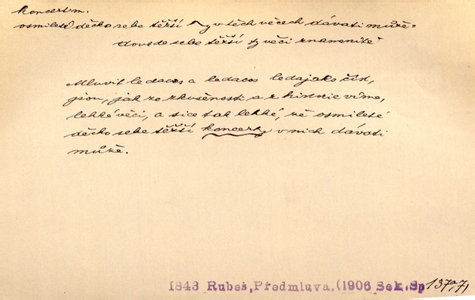 koncertm.
osmileté děcko sebe těší v těch věcech dávati může.
sebe těší ty věci znamenitě
Mluvit ledacos a ledacos ledajako číst,
jsou, jak ze zkušenosti a z historie víme,
lehké věci, a sice tak lehké, že osmileté
děcko sebe těžší koncerty v nich dávati
může.
1843 Rubeš, Předmluva, (1906 Sek. Sp 1377)